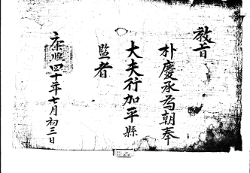 教旨
朴慶承爲朝奉
大夫行加平縣
監者
康熙四十年七月初三日